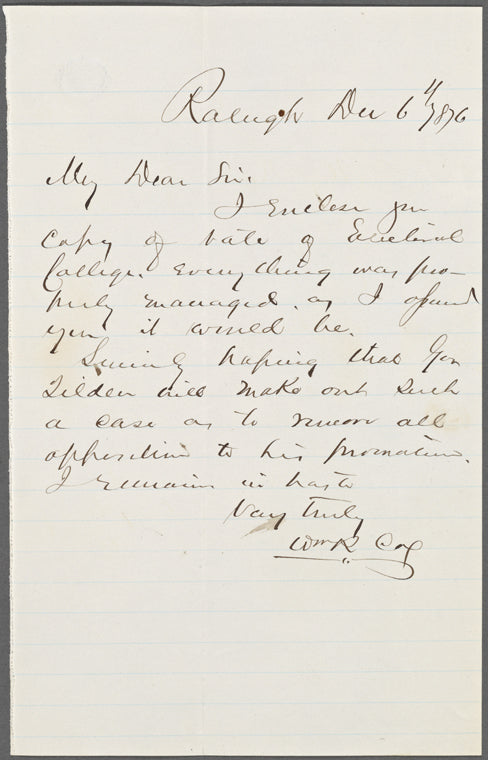 Raleigh Dec 6th / 1876
My Dear Sir.
I Enclose you
Copy of vote of Electoral
College. Everything was pro-
perly managed. as I assured
you it would be.
Sincerely hoping that Gov
Tilden will make out such
a case as to remove all
opposition to his promotion.
I remain in haste
Very truly
Wm R. Cox